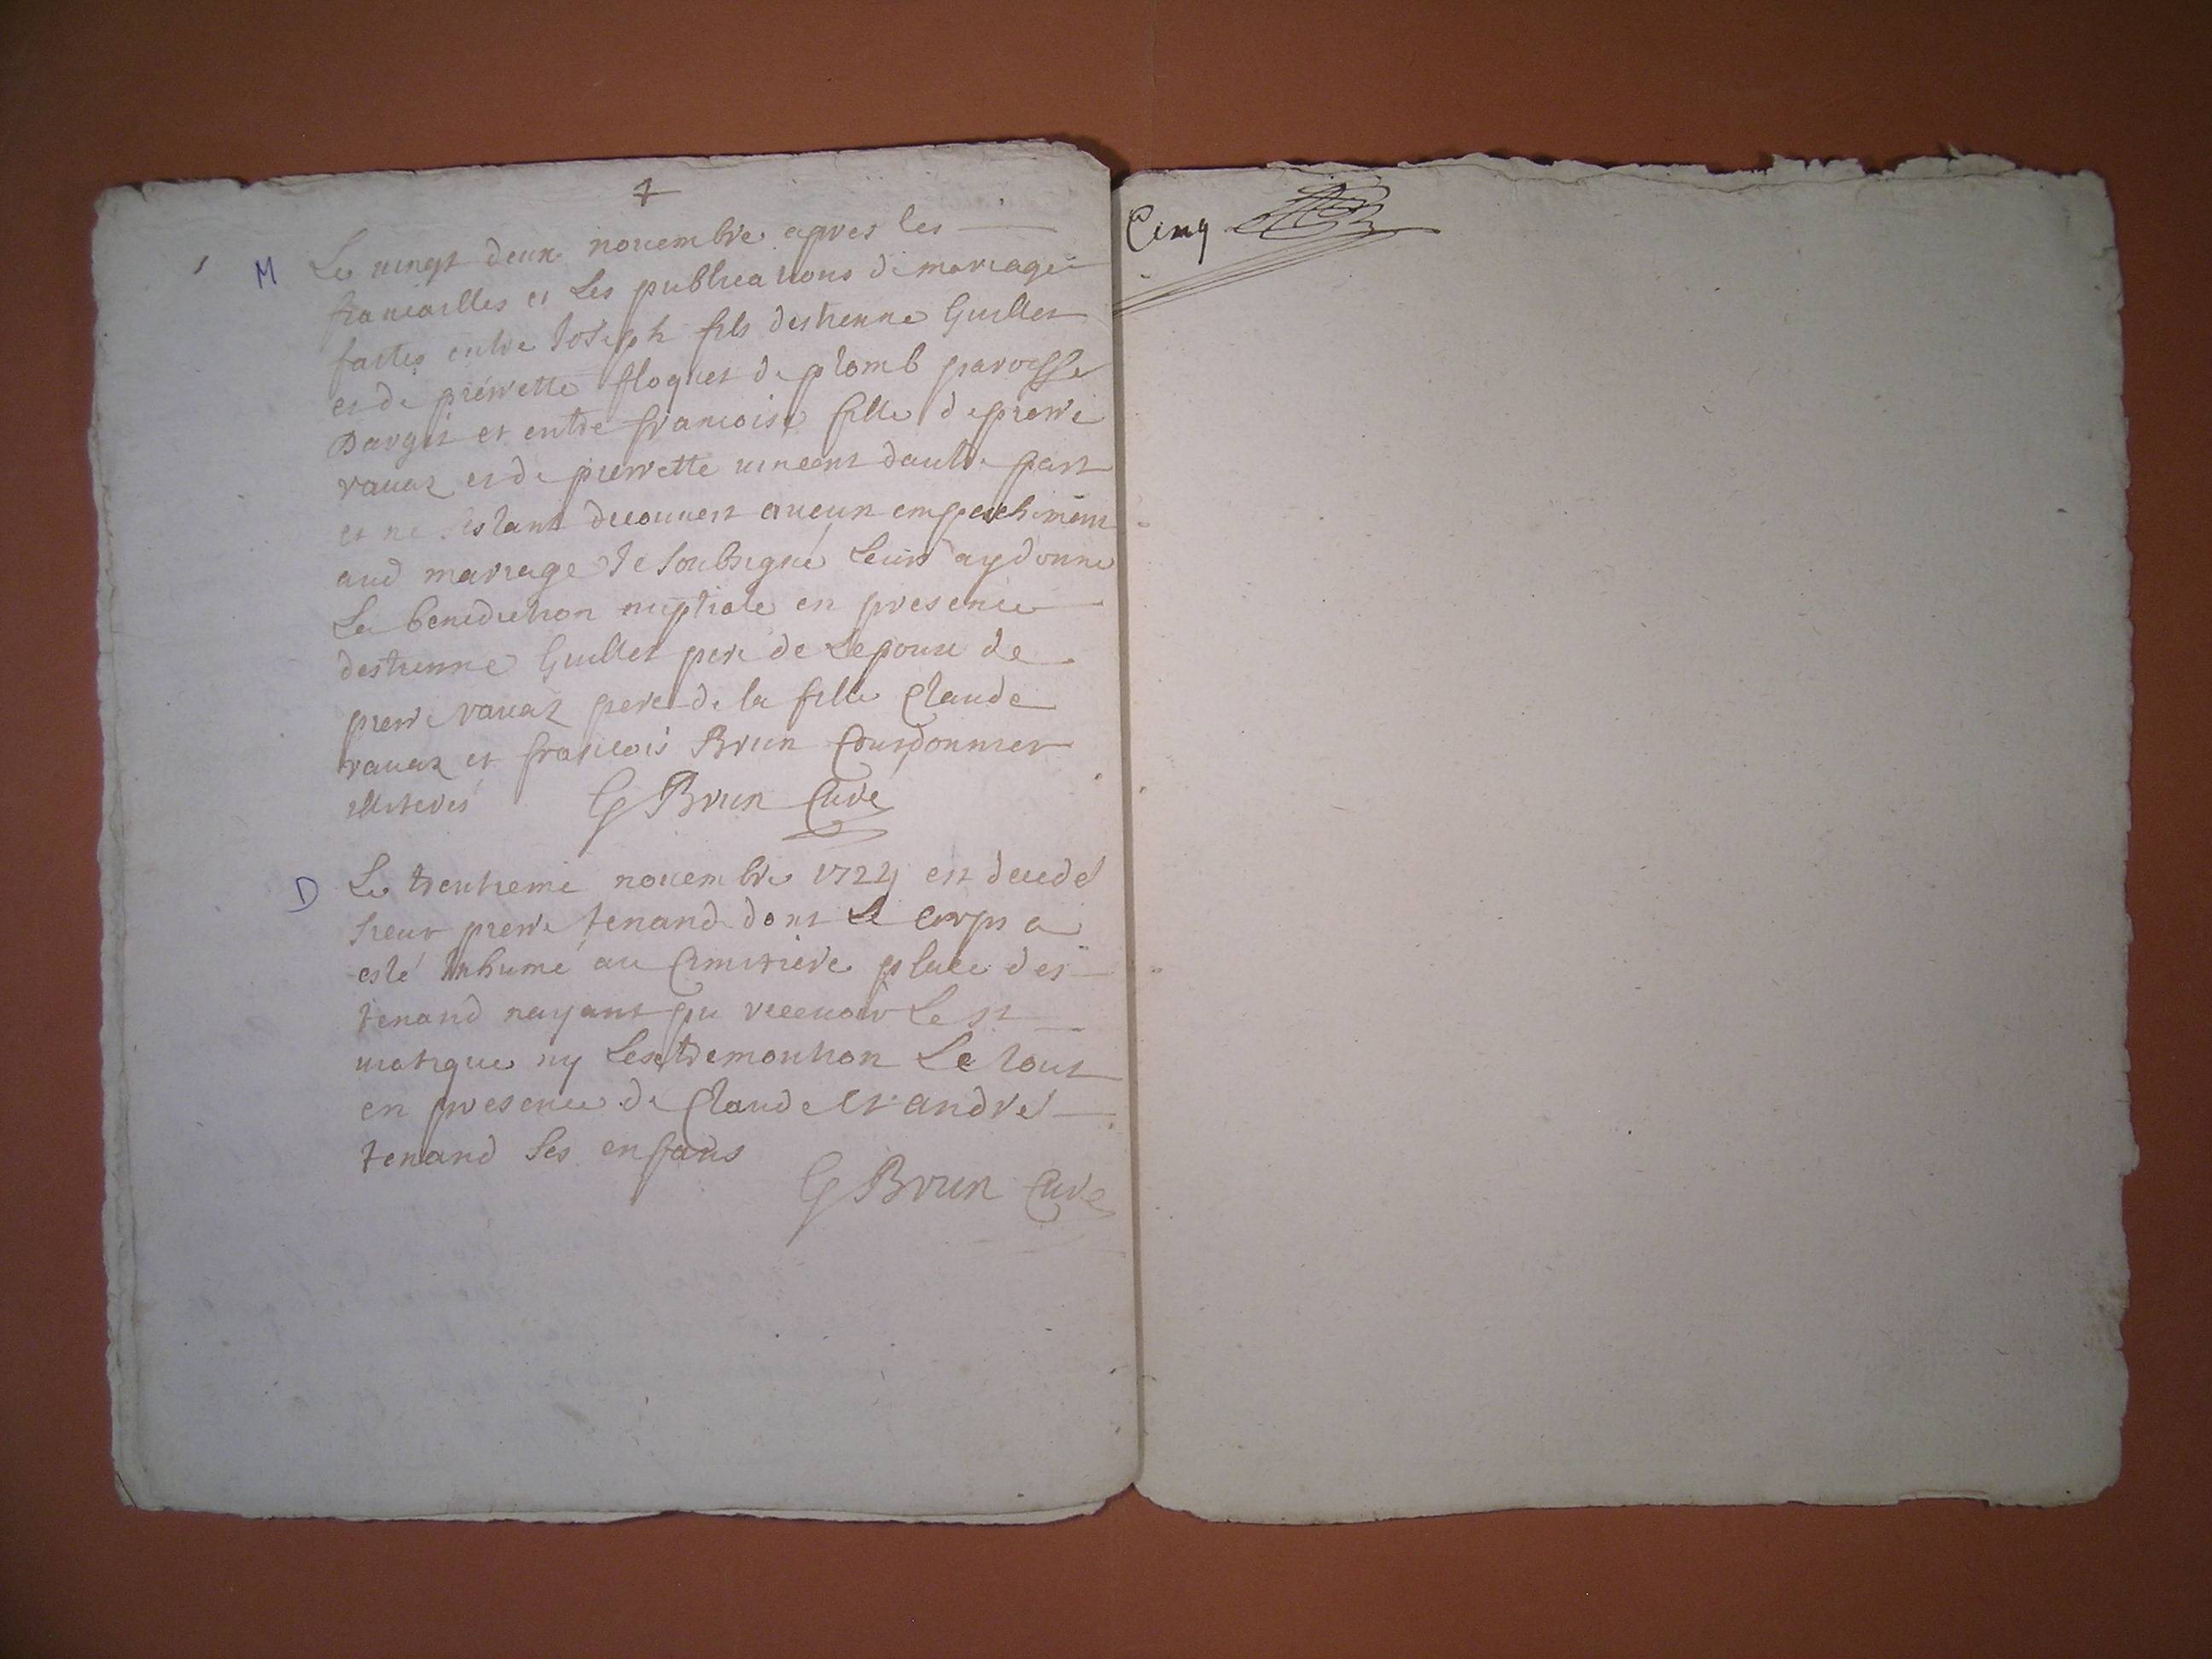 Le vingt deux novembre apres les
M
fiancailles et les publications de mariage
faites entre Joseph fils destienne Guillet
et de pierrette floquet de plomb paroisse
Dargit et entre francoise fille de pierre
ravaz et de pierrette vincent daultre part
et ne sestant decouvert aucun empechement
aud mariage Je soubsigné Leurs ay donné
La benediction nuptiale en presence
destienne Guillet pere de Lepoux de
pierre ravaz pere de la fille Claude
ravaz et francois Brun Courdonnier
illiterés G Brun Curé
D
Le trentieme novembre 1724 est decedé
sieur pierre tenand dont le corps a
esté Inhumé au Cimitiere place des
tenand nayant pu recevoir Le st
viatique ny Lextremontion Le tout
en presence de Claude et andré
tenand ses enfans
G Brun Curé
Cinq